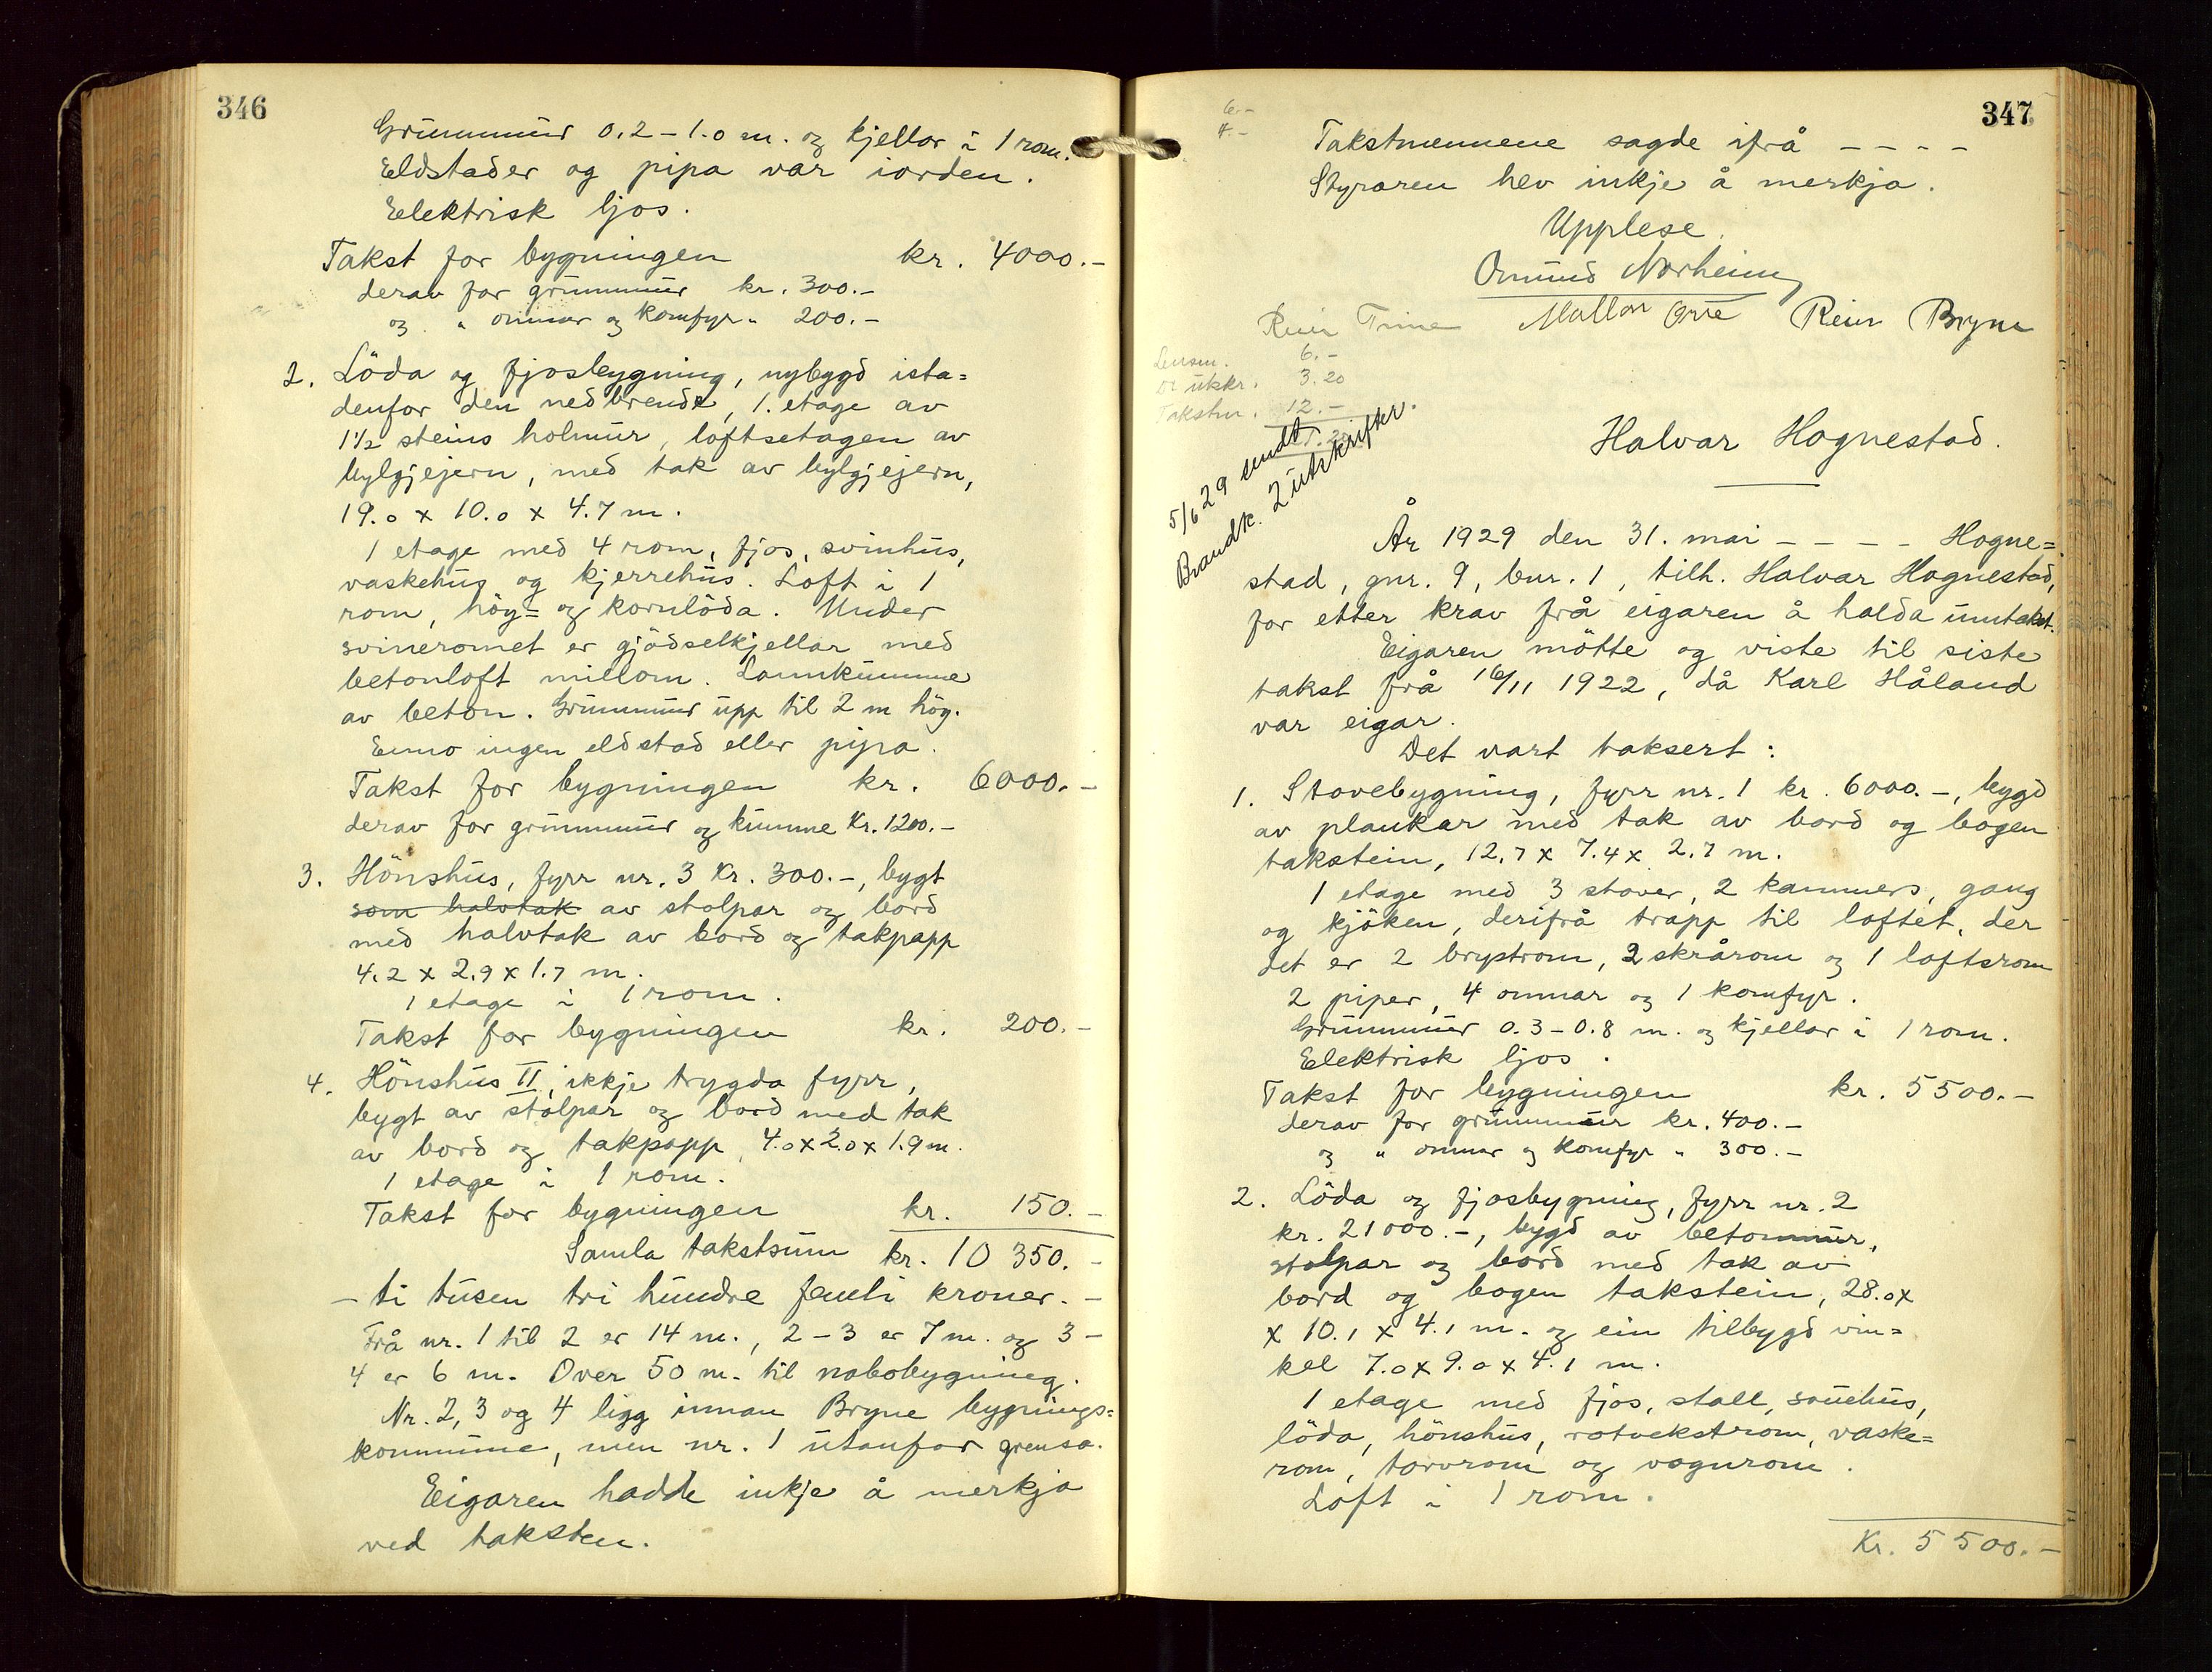 346
Grunnmur 0.2 – 1.0 m. og kjellar i 1 rom.
Eldstader og pipa var iorden.
Elektrisk ljos.
Takst for bygningen kr. 4000.–
derav for grunnmur kr. 300.–
og " omnar og komfyr " 200.–
2. Löda og fjosbygning, nybygd ista=
denfor den nedbrende, 1. etage av
1½ steins holmur, loftsetagen av
bylgjejern, med tak av bylgjejern,
19.0 x 10.0 x 4.7 m.
1 etage med 4 rom, fjos, svinhus,
vaskehus og kjerrehus. Loft i 1
rom, höy= og kornlöda. Under
svineromet er gjödselkjellar med
betonloft millom. Lannkumme
av beton. Grunnmur upp til 2 m hög.
Enno ingen eldstad eller pipa.
Takst for bygningen kr. 6000.–
derav for grunnmur og kumme Kr. 1200.–
3. Hönshus, fyrr nr. 3 Kr. 300.–, bygt
som halvtak av stolpar og bord
med halvtak av bord og takpapp
4.2 x 2.9 x 1.7 m.
1 etage i 1 rom.
Takst for bygningen kr. 200.–
4. Hönshus II, ikkje trygda fyrr,
bygt av stolpar og bord med tak
av bord og takpapp, 4.0 x 2.0 x 1.9 m.
1 etage i 1 rom.
Takst for bygningen kr. 150.–
Samla takstsum kr. 10 350.–
– ti tusen tri hundre femti kroner. –
Frå nr. 1 til 2 er 14 m., 2 – 3 er 7 m. og 3 –
4 er 6 m. Over 50 m. til nabobygning.
Nr. 2, 3 og 4 ligg innan Bryne bygnings=
kommune, men nr. 1 utanfor grensa.
Eigaren hadde inkje å merkja
ved taksten.
347
6.–
4.–
Takstmennene sagde ifrå – – – –
Styraren hev inkje å merkja.
Upplese.
Omund Norheim
Mallon Orre Reier Bryne
Reier Trine
Lensm. 6.–
utskr. 3.20
Takstm. 12.–
5/6 29 sendt
Brandk. 2 utskrifter.
Halvar Hognestad.
År 1929 den 31. mai – – – – Hogne=
stad, gnr. 9, bnr. 1, tilh. Halvar Hognestad,
for etter krav frå eigaren å halda umtakst.
Eigaren mötte og viste til siste
takst frå 16/11 1922, då Karl Håland
var eigar.
Det vart taksert:
1. Stovebygning, fyrr nr. 1 kr. 6000.–, bygd
av plankar med tak av bord og bogen
takstein, 12.7 x 7.4 x 2.7 m.
1 etage med 3 stover, 2 kammers, gang
og kjöken, derifrå trapp til loftet, der
det er 2 brystrom, 2 skrårom og 1 loftsrom
2 piper, 4 omnar og 1 komfyr.
Grunnmur 0.3 – 0.8 m. og kjellar i 1 rom.
Elektrisk ljos.
Takst for bygningen kr. 5500.–
derav for grunnmur kr. 400.–
og " omnar og komfyr " 300.–
2. Löda og fjosbygning, fyrr nr. 2
kr. 21000.–, bygd av betonmur,
stolpar og bord med tak av
bord og bogen takstein, 28.0 x
x 10.1 x 4.1 m. og ein tilbygd vin=
kel 7.0 x 9.0 x 4.1 m.
1 etage med fjos, stall, souehus,
löda, hönshus, rotvekstrom, vaske=
rom, torvrom og vognrom.
Loft i 1 rom.
Kr. 5500.–